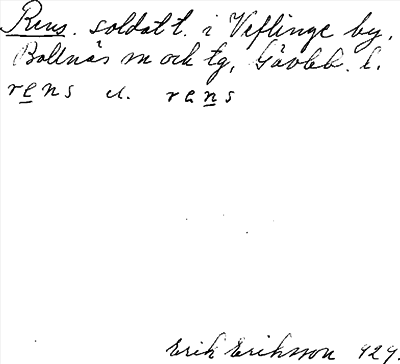 Rens. soldat t. i Veflinge by,
Bollnäs sn och tg, Gävleb. l.
rens el. rens
Erik Eriksson 929.